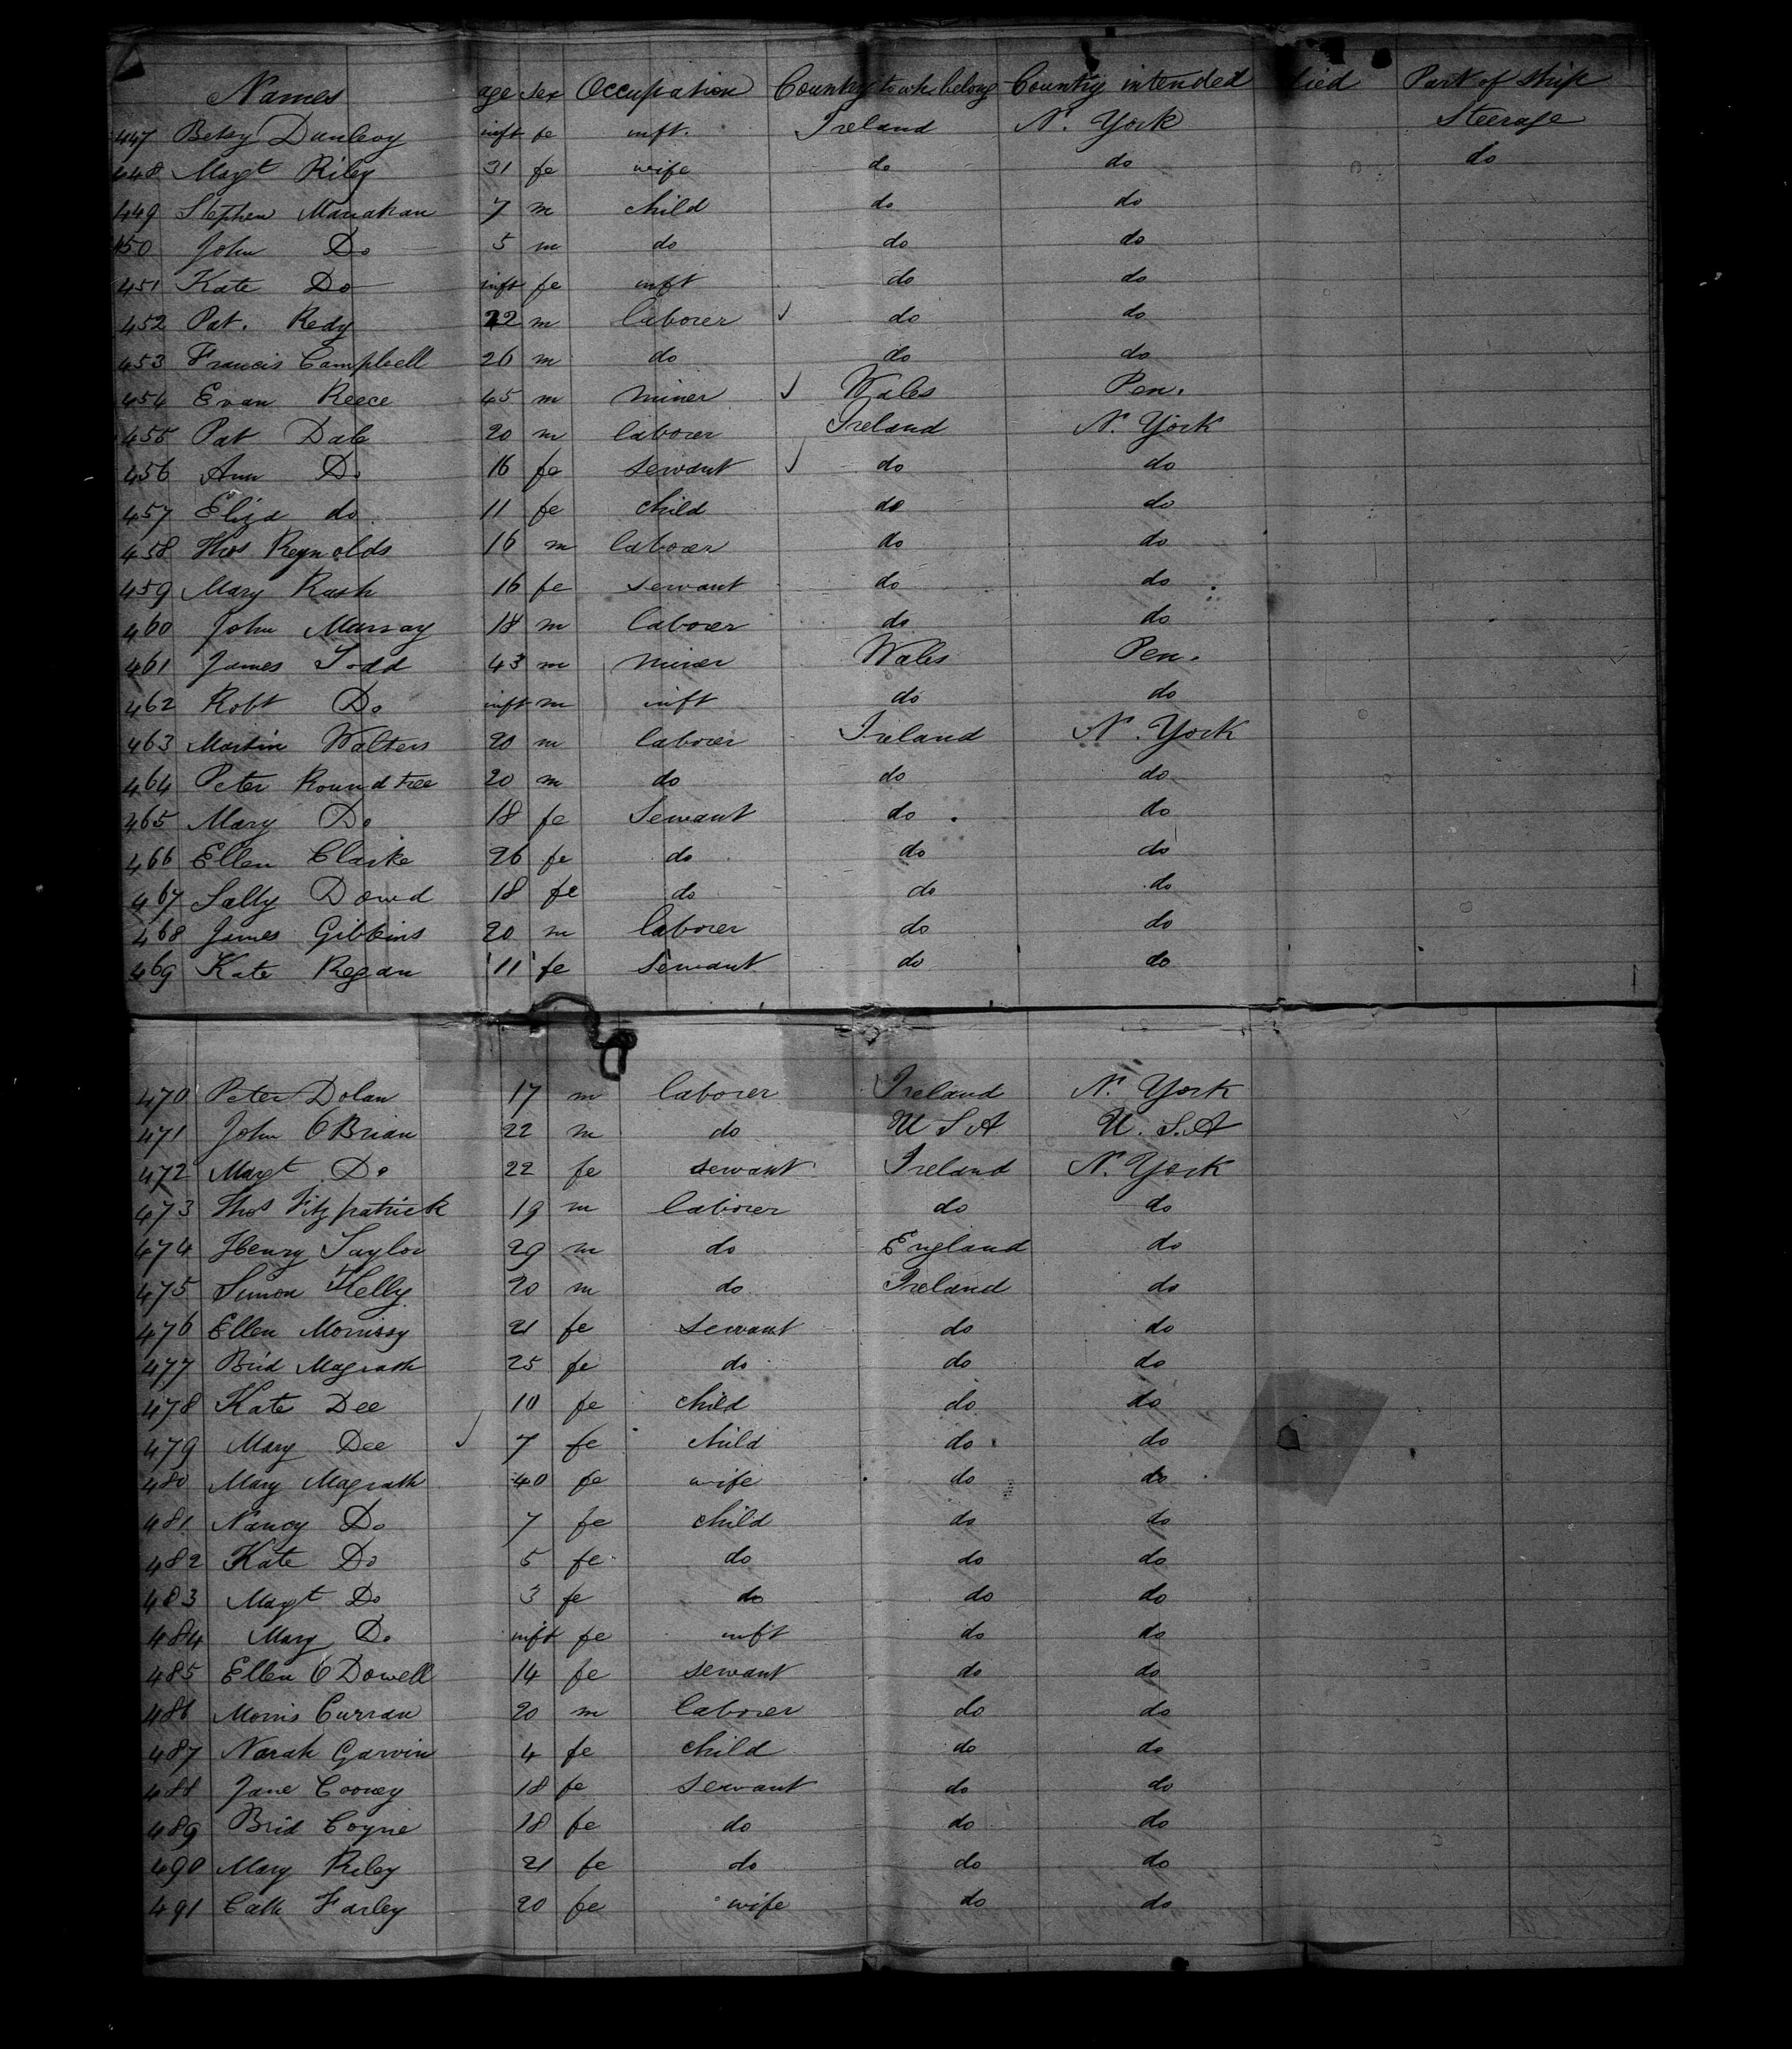 Names age sex Occupation Country to wh. belong Country intended died Part of Ship
447 Betsy Dunleoy inft fe inft. Ireland N. York Steerage
448 Margt Riley 31 fe wife do do do
449 Stephen Manahan 7 m child do do
450 John Do 5 m do do do
451 Kate Do inft fe inft do do
452 Pat. Redy 22 m laborer do do
453 Francis Campbell 26 m do do do
454 Evan Reece 45 m miner Wales Pen.
455 Pat Dale 20 m laborer Ireland N. York
456 Ann Do 16 fe servant do do
457 Eliza do 11 fe child do do
458 Thos Reynolds 16 m laborer do do
459 Mary Rush 16 fe servant do do
460 John Murray 18 m laborer do do
461 James Todd 43 m miner Wales Pen.
462 Robt Do inft m inft do do
463 Martin Walters 20 m laborer Ireland N. York
464 Peter Roundtree 20 m do do do
465 Mary Do 18 fe Servant do do
466 Ellen Clarke 26 fe do do do
467 Sally Dowd 18 fe do do do
468 James Gibbins 20 m laborer do do
469 Kate Regan 11 fe servant do do
470 Peter Dolan 17 m laborer Ireland N. York
471 John O Brian 22 m do U S A U. S. A
472 Margt Do 22 fe servant Ireland N. York
473 Thos Fitzpatrick 19 m laborer do do
474 Henry Taylor 29 m do England do
475 Simon Kelly 20 m do Ireland do
476 Ellen Morrissy 21 fe servant do do
477 Brid Magrath 25 fe do do do
478 Kate Dee 10 fe child do do
479 Mary Dee 7 fe child do do
480 Mary Magrath 40 fe wife do do
481 Nancy Do 7 fe child do do
482 Kate Do 5 fe do do do
483 Margt Do 3 fe do do do
484 Mary Do inft fe inft do do
485 Ellen O Dowell 14 fe servant do do
486 Morris Curran 20 m laborer do do
487 Norah Garvin 4 fe child do do
488 Jane Cooney 18 fe servant do do
489 Brid Coyne 18 fe do do do
490 Mary Riley 21 fe do do do
491 Cath Farley 20 fe wife do do